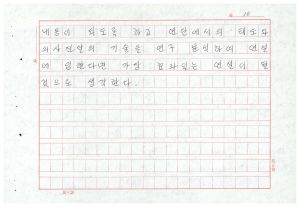 10
내용이 되도록 하고 연단에서의 태도와
의사전달의 기술을 연구 분석하여 연설
에 임한다면 가장 효과있는 연설이 될
것으로 생각한다.